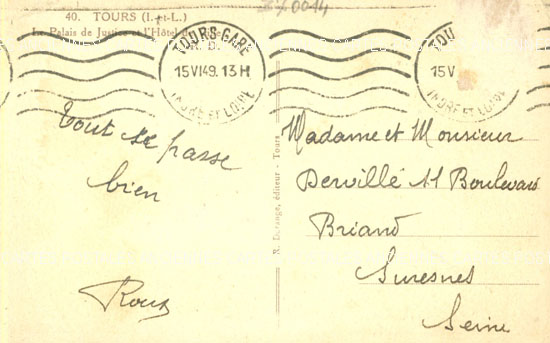 40. TOURS (I.-et-L.)
Le Palais de Justice et l'Hôtel de
TOURS GARE
R. D.
15 VI 49. 13 H
INDRE ET LOIRE
TOU
15 V
INDRE ET LOIRE
Tout se passe
bien
R. Lagrange, éditeur - Tours
Madame et Monsieur
Dervillé 11 Boulevard
Briand
Suresnes
Seine